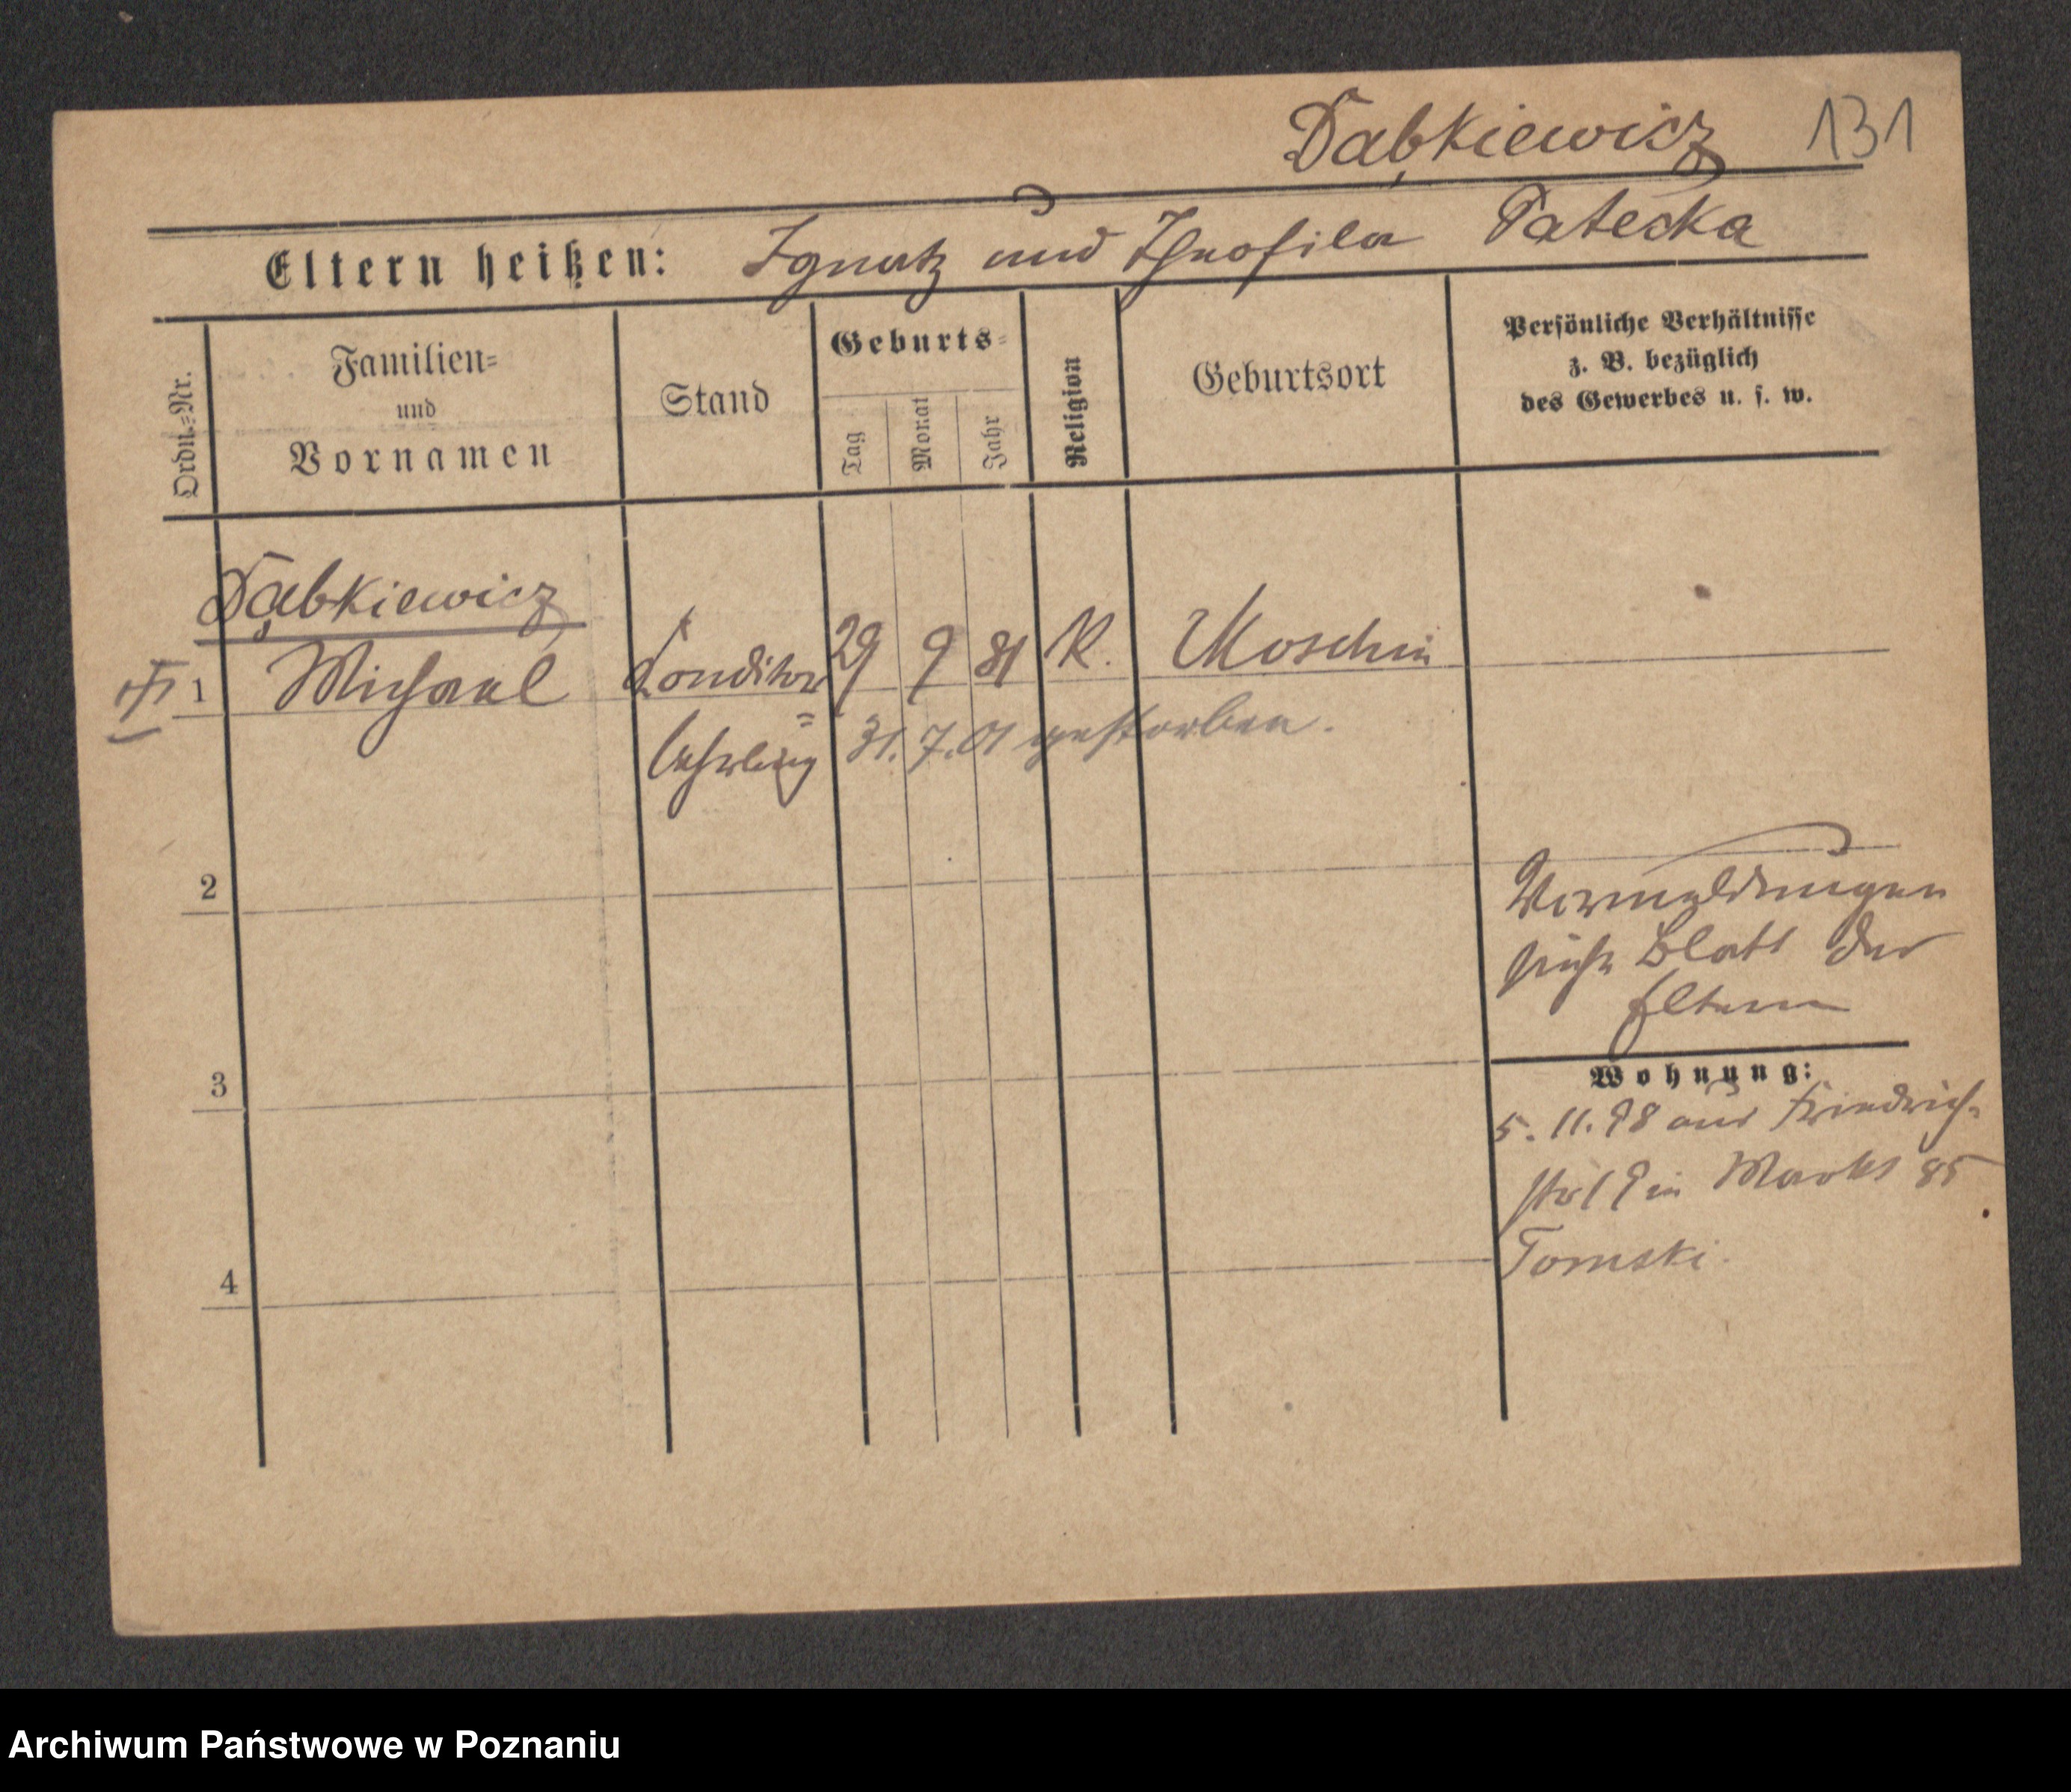 Dąbkiewicz 131
Eltern heißen: Ignatz und Theofila Patecka
Ordn.-Nr.
Familien-
und
Vornamen
Stand
Geburts-
Tag
Monat
Jahr
Religion
Geburtsort
Persönliche Verhältnisse
z. B. bezüglich
des Gewerbes u. s. w.
Dąbkiewicz
1 Michael Conditor 29 9 81 K. Moschin
=
lehrling 31. 7. 01 gestorben.
2
Vormeldungen
siehe Blatt der
Eltern
Wohnung:
3
5. 11. 98 aus Friedrich-
str 19 in Markt 85
Tomski.
4
Archiwum Państwowe w Poznaniu